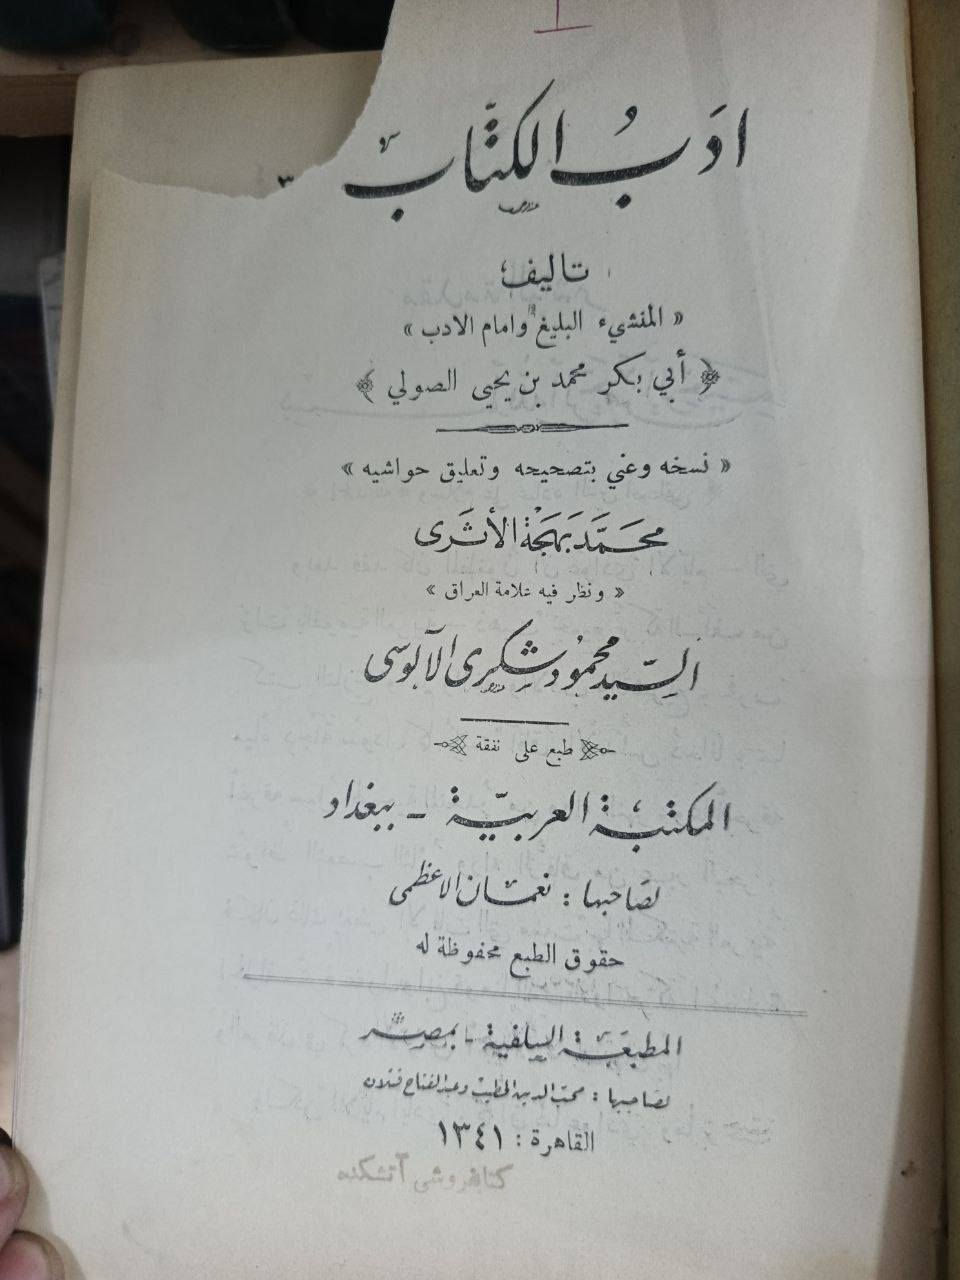 ادَبُ الكتّاب
تاليف
« المنشيء البليغ وامام الادب »
﴿ أبي بكر محمد بن يحيى الصولي ﴾
« نسخه وعني بتصحيحه وتعليق حواشيه »
محمَّد بَهجَة الأثَرى
« ونظر فيه علامة العراق »
السيّد محمُود شكرى الآلوسى
طبع على نفقة
المكتبة العربيّة - ببغداد
لصَاحبها : نعمَان الاعظمى
حقوق الطبع محفوظة له
المطبعَة السلفية - بمصر
لصَاحبيها : محب الدين الخطيب وعبد الفتاح قتلان
القاهرة : ١٣٤١
كتابفروشى آتشكده